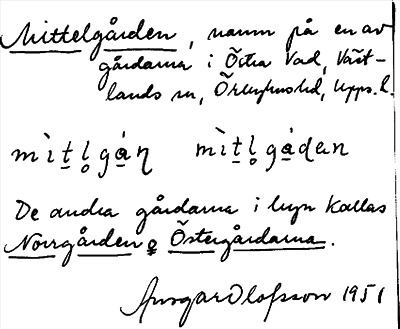 Mittelgården, namn på en av
gårdarna i Östra Vad, Väst-
lands sn, Örbyhus hd, Upps. l.
mìt̲l̥gá̲ṇ mìt̲l̥gá̲dɛn
De andra gårdarna i byn kallas
Norrgården o Östergårdarna.
Ansgar Olofsson 1951